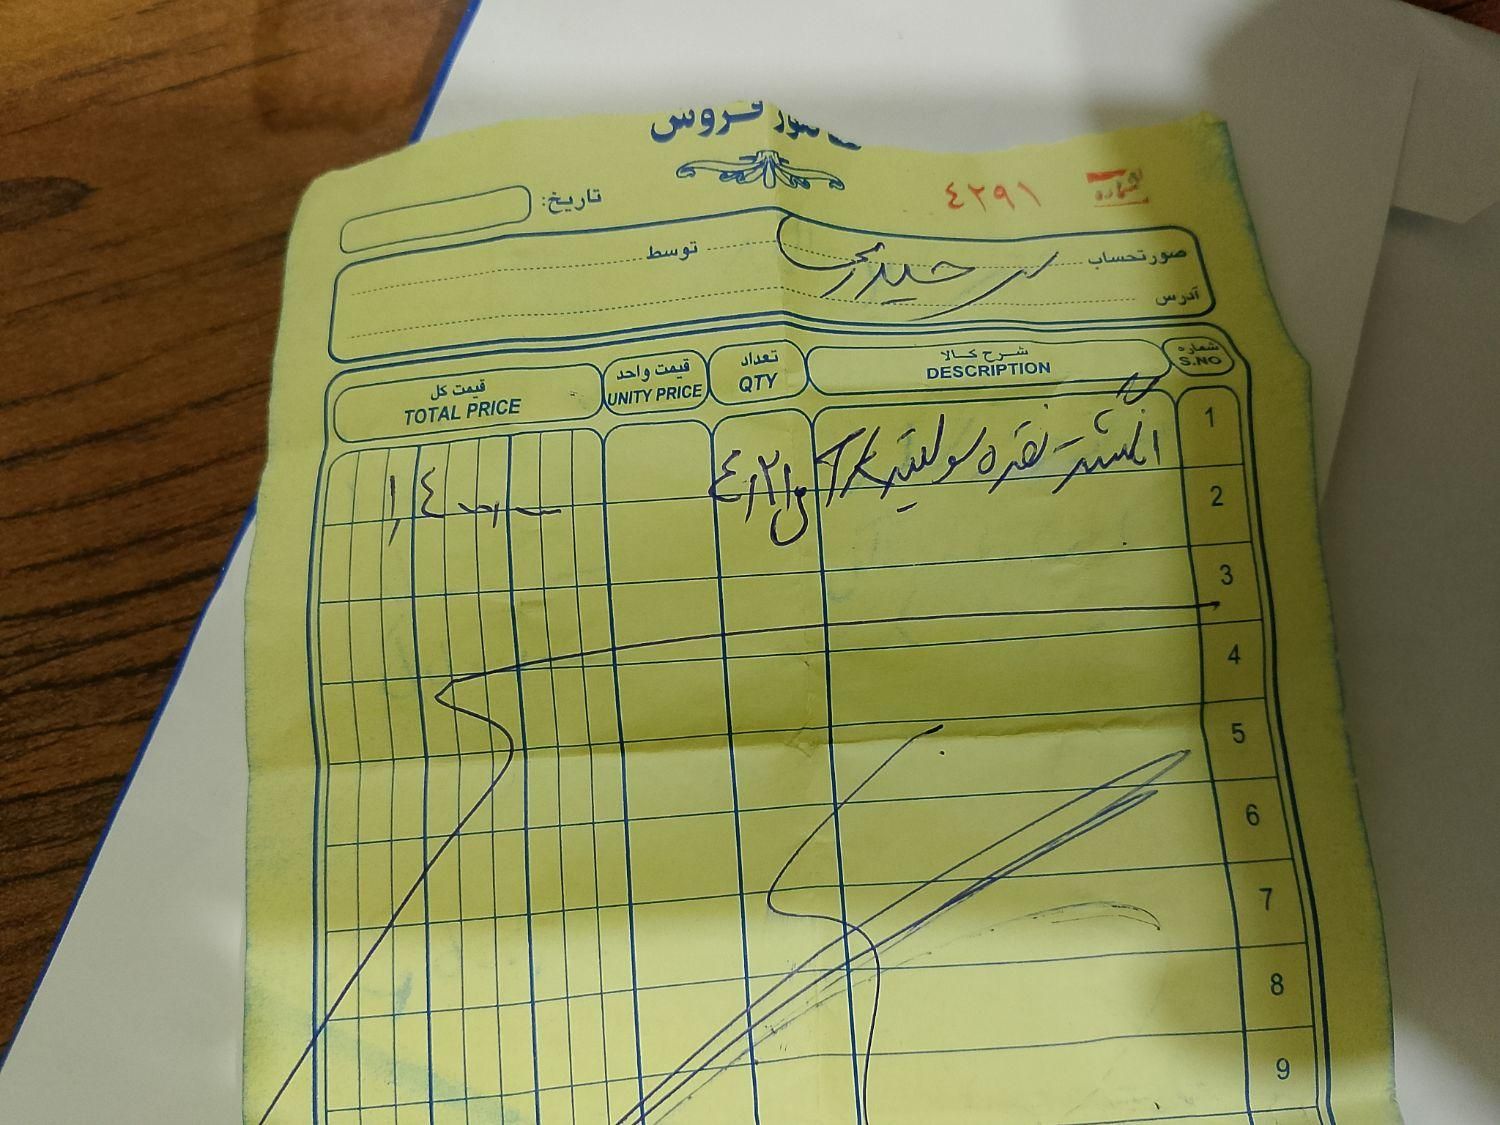 فاکتور فروش
شماره ٤٢٩١
تاریخ:
صورتحساب حیدری توسط
آدرس
شماره S.NO شرح کالا DESCRIPTION تعداد QTY قیمت واحد UNITY PRICE قیمت کل TOTAL PRICE
1 انگشتر نقره سولیتر
2
3
4
5
6
7
8
9